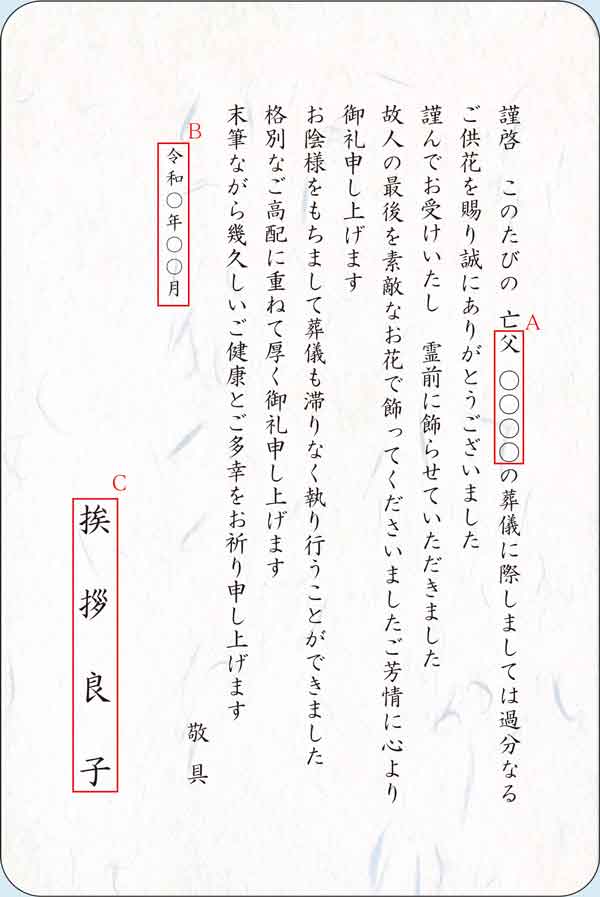 謹啓　このたびの　亡父　〇〇〇〇の葬儀に際しましては過分なる
ご供花を賜り誠にありがとうございました
謹んでお受けいたし　霊前に飾らせていただきました
故人の最後を素敵なお花で飾ってくださいましたご芳情に心より
御礼申し上げます
お陰様をもちまして葬儀も滞りなく執り行うことができました
格別なご高配に重ねて厚く御礼申し上げます
末筆ながら幾久しいご健康とご多幸をお祈り申し上げます
敬具
令和〇年〇〇月
挨拶良子
A
B
C